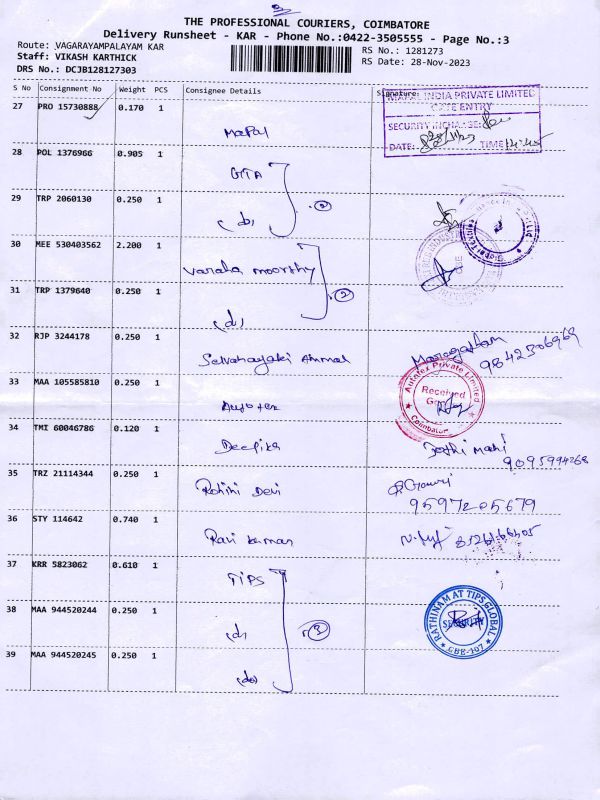 THE PROFESSIONAL COURIERS, COIMBATORE
Delivery Runsheet - KAR - Phone No.:0422-3505555 - Page No.:3
Route: VAGARAYAMPALAYAM KAR
Staff: VIKASH KARTHICK
DRS No.: DCJB128127303
RS No.: 1281273
RS Date: 28-Nov-2023
S No Consignment No Weight PCS Consignee Details Signature:
INDIA PRIVATE LIMITED
GATE ENTRY
SECURITY INCHARGE:
DATE: 28/11/23 TIME
27 PRO 15730888 0.170 1
Mapal
28 POL 1376966 0.905 1
GTA
29 TRP 2060130 0.250 1
(do) 2
30 MEE 530403562 2.200 1
Varaha moorthy
31 TRP 1379640 0.250 1
(do) 2
32 RJP 3244178 0.250 1
Selvanayaki Ammal
9842306969
33 MAA 105585810 0.250 1
Autotex
Autotex Private Limited
Received
Coimbatore
34 TMI 60046786 0.120 1
Deepika Jothi Mani
9095994268
35 TRZ 21114344 0.250 1
Rohini Devi Gowri
9597205679
36 STY 114642 0.740 1
Ravi kumar
37 KRR 5823062 0.610 1
TIPS
38 MAA 944520244 0.250 1
(do) 3
RATHINAM AT TIPS GLOBAL
SECURITY
CBE-107
39 MAA 944520245 0.250 1
(do)